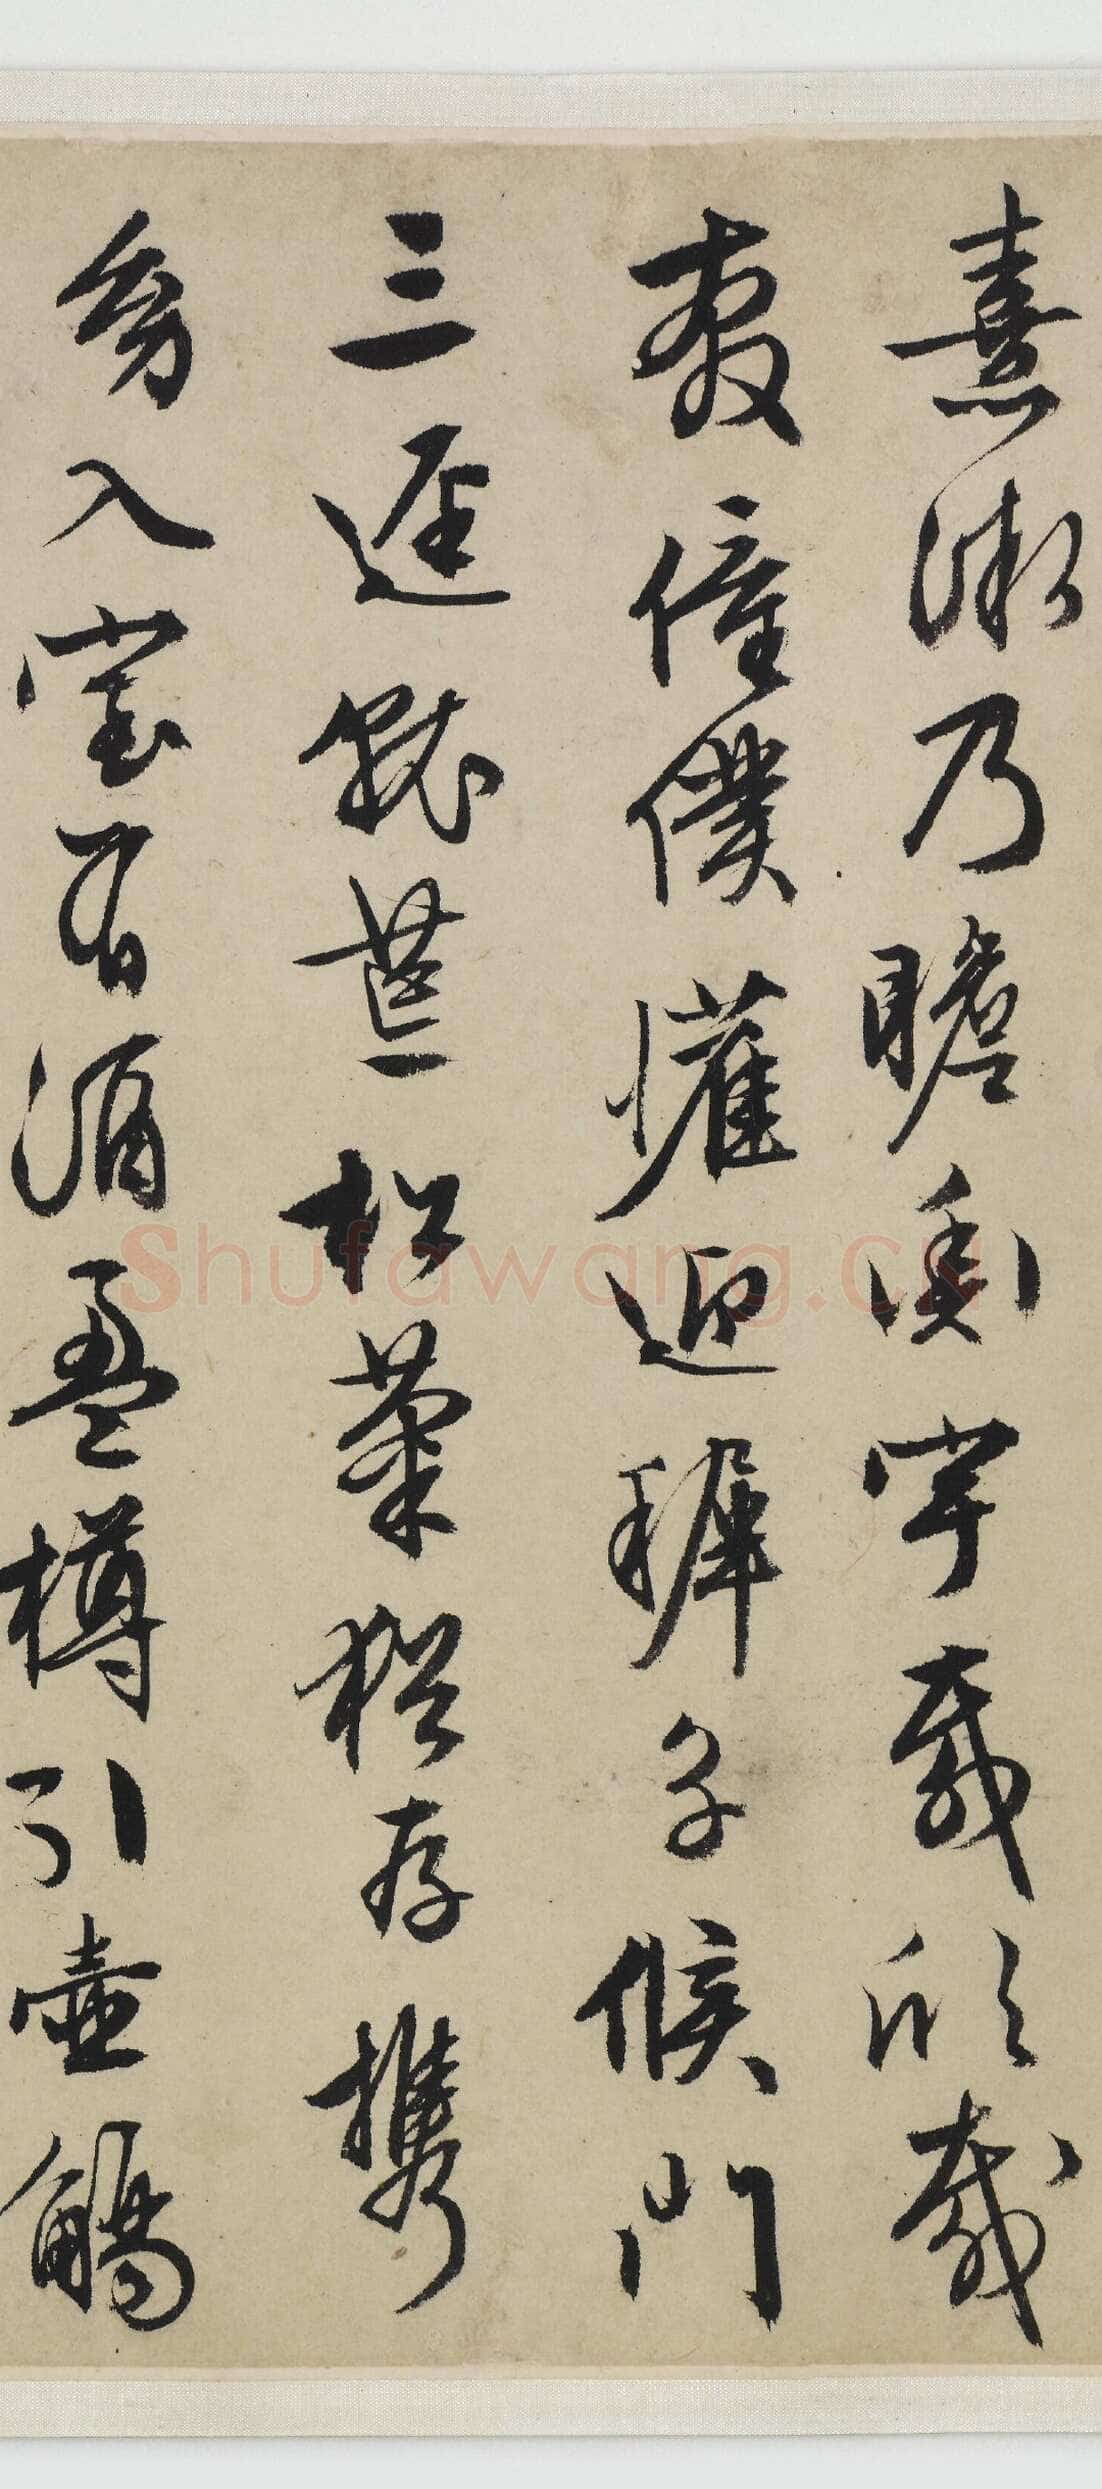 熹微乃瞻衡宇載欣載
奔僮僕懽迎稺子候門
三逕就荒松菊猶存攜
幼入室有酒盈樽引壺觴
Shufawang.CN